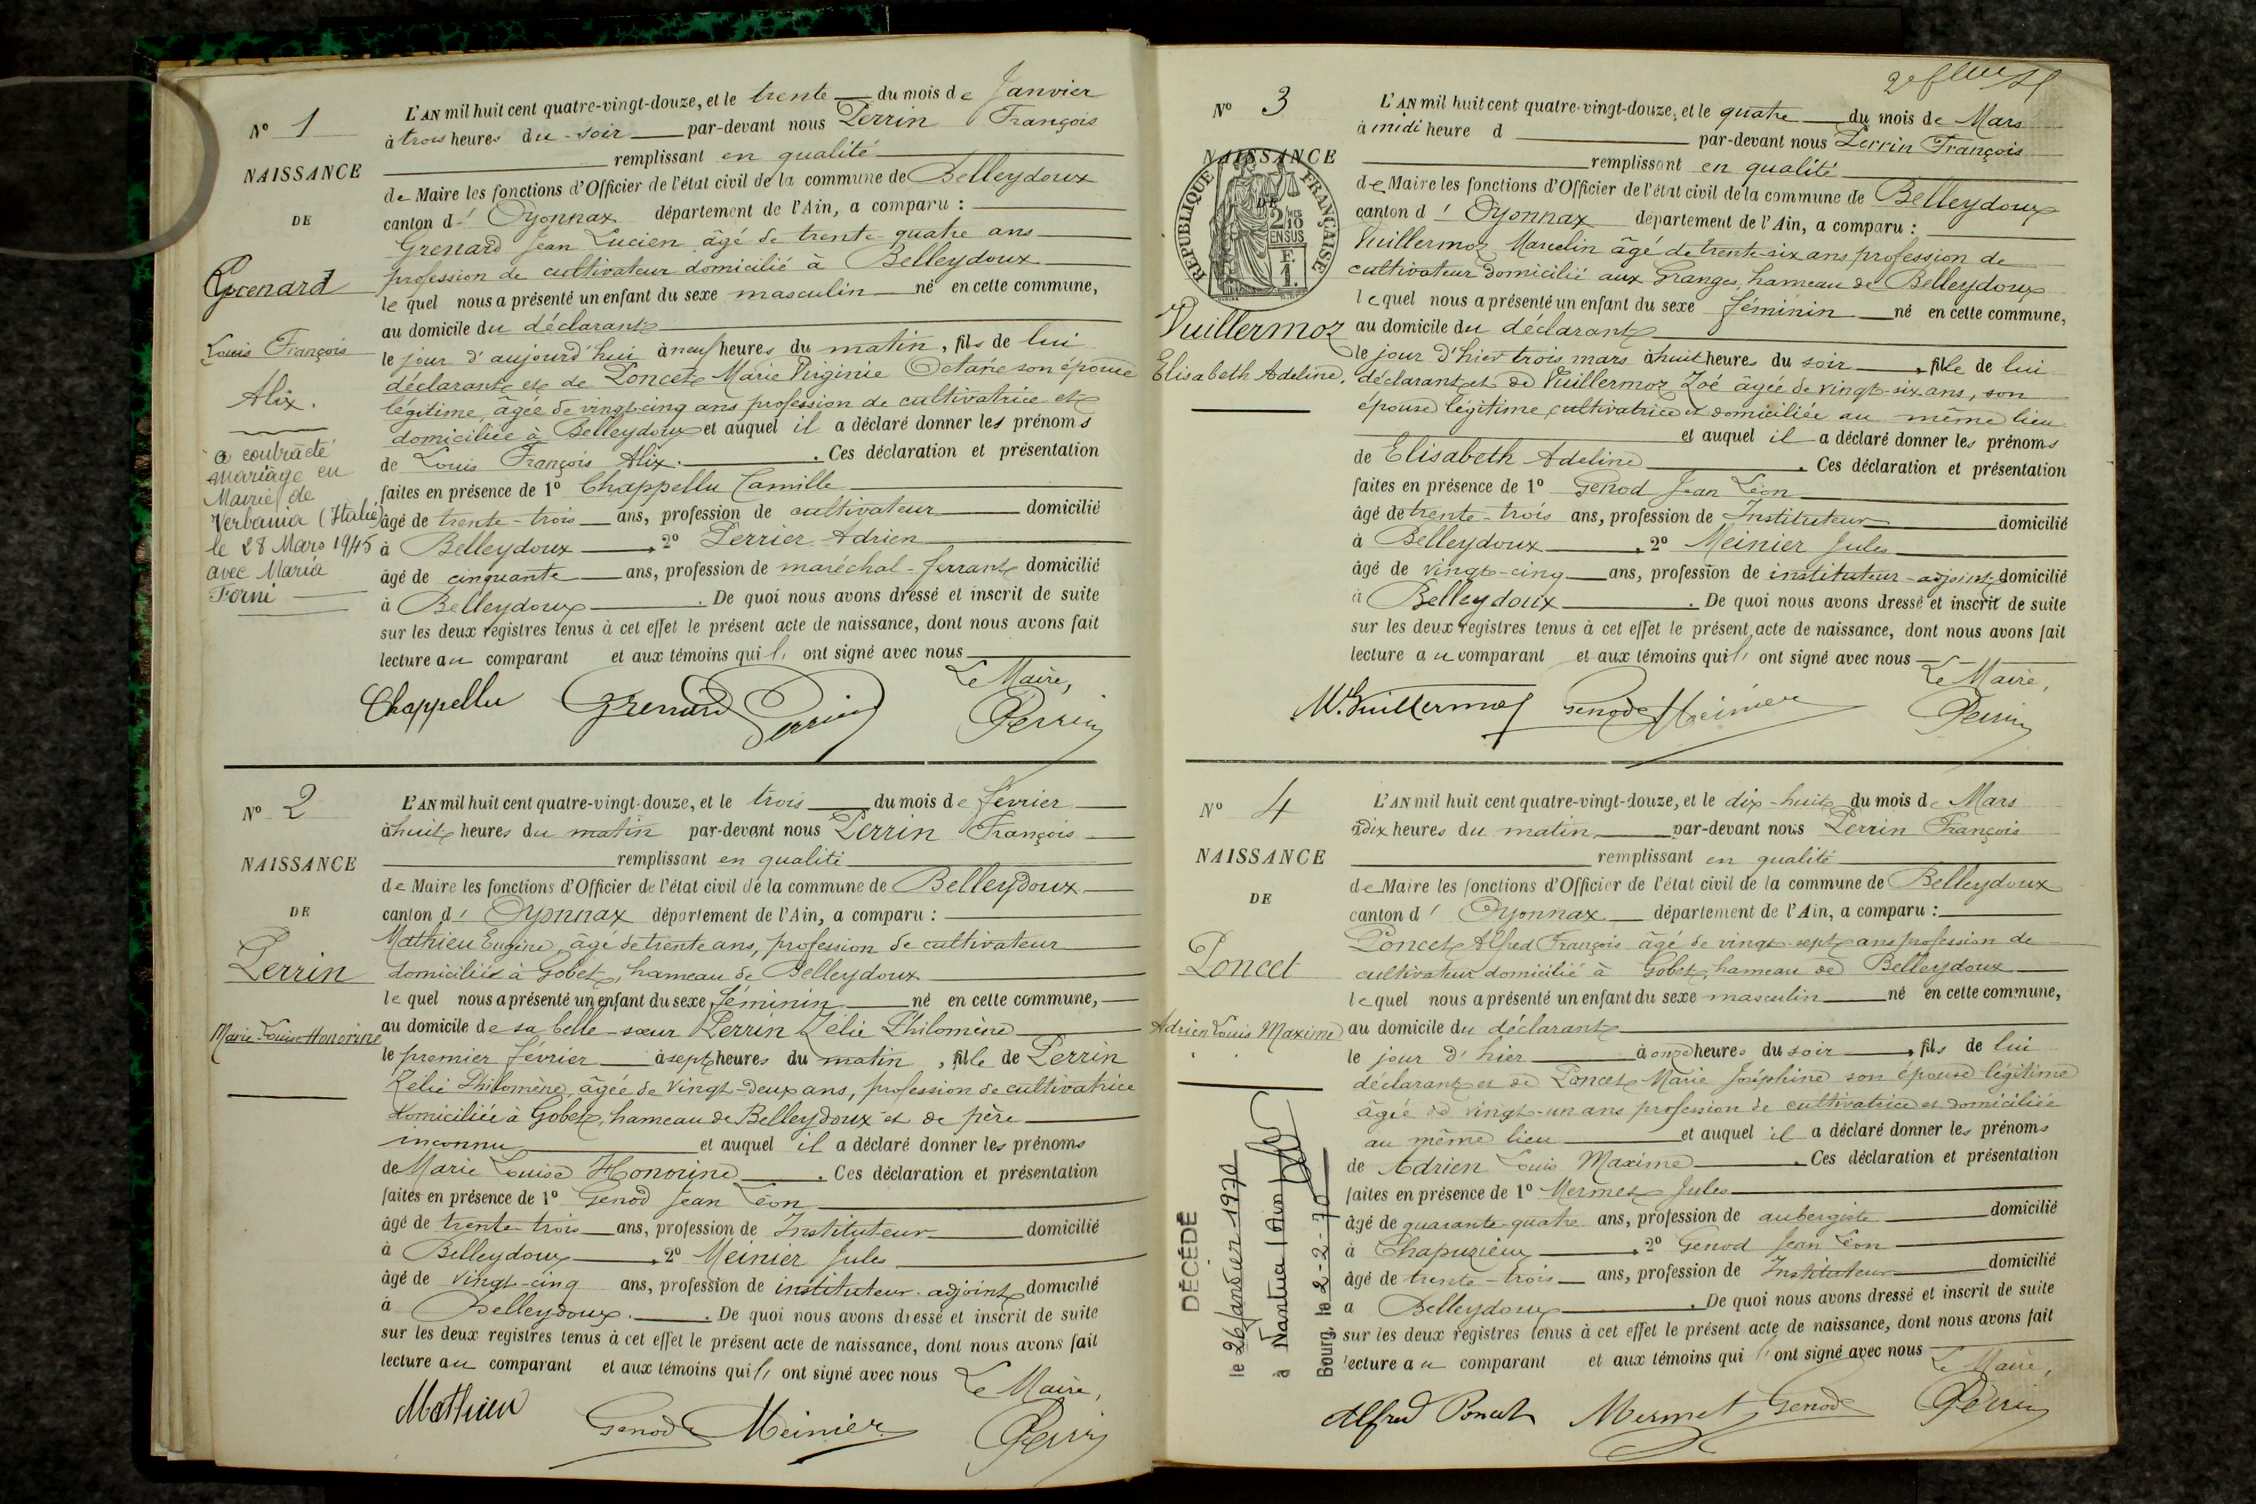 Nº 1
NAISSANCE
DE
Grenard
Louis François
Alix.
a contracté
mariage en
Mairie de
Verbania (Italie)
le 28 Mars 1945
avec Maria
Forni
L'AN mil huit cent quatre-vingt-douze, et le trente du mois de Janvier
à trois heures du soir par-devant nous Perrin François
remplissant en qualité
de Maire les fonctions d'Officier de l'état civil de la commune de Belleydoux
canton d' Oyonnax département de l'Ain, a comparu :
Grenard Jean Lucien âgé de trente-quatre ans
profession de cultivateur domicilié à Belleydoux
lequel nous a présenté un enfant du sexe masculin né en cette commune,
au domicile du déclarant
le jour d'aujourd'hui à neuf heures du matin, fils de lui
déclarant et de Poncet Marie Virginie Octavie son épouse
légitime, âgée de vingt-cinq ans profession de cultivatrice et
domiciliée à Belleydoux et auquel il a déclaré donner les prénoms
de Louis François Alix. Ces déclaration et présentation
faites en présence de 1º Chappellu Camille
âgé de trente-trois ans, profession de cultivateur domicilié
à Belleydoux 2º Perrier Adrien
âgé de cinquante ans, profession de maréchal-ferrant domicilié
à Belleydoux. De quoi nous avons dressé et inscrit de suite
sur les deux registres tenus à cet effet le présent acte de naissance, dont nous avons fait
lecture au comparant et aux témoins qui ont signé avec nous
Le Maire,
Chappellu Grenard Perrin
Nº 2
NAISSANCE
DE
Perrin
Marie Louise Honorine
L'AN mil huit cent quatre-vingt-douze, et le trois du mois de février
à huit heures du matin par-devant nous Perrin François
remplissant en qualité
de Maire les fonctions d'Officier de l'état civil de la commune de Belleydoux
canton d' Oyonnax département de l'Ain, a comparu :
Mathieu Eugène, âgé de trente ans, profession de cultivateur
domicilié à Gobet, hameau de Belleydoux
lequel nous a présenté un enfant du sexe féminin né en cette commune,
au domicile de sa belle-sœur Perrin Zélie Philomène
le premier février à sept heures du matin, fille de Perrin
Zélie Philomène, âgée de vingt-deux ans, profession de cultivatrice
domiciliée à Gobet, hameau de Belleydoux et de père
inconnu et auquel il a déclaré donner les prénoms
de Marie Louise Honorine. Ces déclaration et présentation
faites en présence de 1º Genod Jean Léon
âgé de trente-trois ans, profession de Instituteur domicilié
à Belleydoux. 2º Meinier Jules
âgé de vingt-cinq ans, profession de instituteur-adjoint domicilié
à Belleydoux. De quoi nous avons dressé et inscrit de suite
sur les deux registres tenus à cet effet le présent acte de naissance, dont nous avons fait
lecture au comparant et aux témoins qui ont signé avec nous
Le Maire,
Mathieu Genod Meinier Perrin
Nº 3
NAISSANCE
DE
RÉPUBLIQUE FRANÇAISE
Vuillermoz
Elisabeth Adeline.
L'AN mil huit cent quatre-vingt-douze, et le quatre du mois de Mars
à midi heure d par-devant nous Perrin François
remplissant en qualité
de Maire les fonctions d'Officier de l'état civil de la commune de Belleydoux
canton d' Oyonnax département de l'Ain, a comparu :
Vuillermoz Marcelin âgé de trente-six ans profession de
cultivateur domicilié aux Granges, hameau de Belleydoux
lequel nous a présenté un enfant du sexe féminin né en cette commune,
au domicile du déclarant
le jour d'hier trois mars à huit heures du soir, fille de lui
déclarant et de Vuillermoz Zoé âgée de vingt-six ans, son
épouse légitime cultivatrice et domiciliée au même lieu
et auquel il a déclaré donner les prénoms
de Elisabeth Adeline. Ces déclaration et présentation
faites en présence de 1º Genod Jean Léon
âgé de trente-trois ans, profession de Instituteur domicilié
à Belleydoux. 2º Meinier Jules
âgé de vingt-cinq ans, profession de instituteur-adjoint domicilié
à Belleydoux. De quoi nous avons dressé et inscrit de suite
sur les deux registres tenus à cet effet le présent acte de naissance, dont nous avons fait
lecture au comparant et aux témoins qui ont signé avec nous
Le Maire,
M. Vuillermoz Genod Meinier Perrin
Nº 4
NAISSANCE
DE
Poncet
Adrien Louis Maxime
DÉCÉDÉ
le 26 Janvier 1970
à Nantua (Ain)
Bourg, le 2-2-70
L'AN mil huit cent quatre-vingt-douze, et le dix-huit du mois de Mars
à dix heures du matin par-devant nous Perrin François
remplissant en qualité
de Maire les fonctions d'Officier de l'état civil de la commune de Belleydoux
canton d' Oyonnax département de l'Ain, a comparu :
Poncet Alfred François âgé de vingt-sept ans profession de
cultivateur domicilié à Gobet, hameau de Belleydoux
lequel nous a présenté un enfant du sexe masculin né en cette commune,
au domicile du déclarant
le jour d'hier à onze heures du soir, fils de lui
déclarant et de Poncet Marie Joséphine son épouse légitime
âgée de vingt-un ans profession de cultivatrice et domiciliée
au même lieu et auquel il a déclaré donner les prénoms
de Adrien Louis Maxime. Ces déclaration et présentation
faites en présence de 1º Mermet Jules
âgé de quarante-quatre ans, profession de aubergiste domicilié
à Chapuzieux. 2º Genod Jean Léon
âgé de trente-trois ans, profession de Instituteur domicilié
à Belleydoux. De quoi nous avons dressé et inscrit de suite
sur les deux registres tenus à cet effet le présent acte de naissance, dont nous avons fait
lecture au comparant et aux témoins qui ont signé avec nous
Le Maire,
Alfred Poncet Mermet Genod Perrin